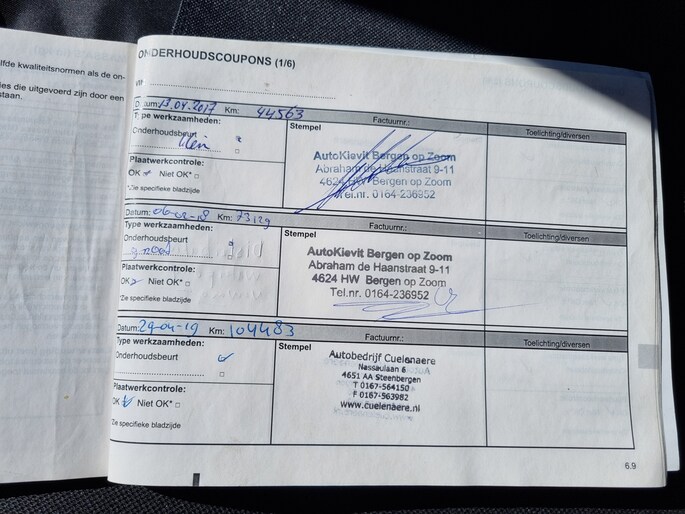 lfde kwaliteitsnormen als de on-
ies die uitgevoerd zijn door een
staan.
ONDERHOUDSCOUPONS (1/6)
Datum: 13.04.2017 Km: 44563 Factuurnr.: Toelichting/diversen
Type werkzaamheden:
Onderhoudsbeurt
klein
Plaatwerkcontrole:
OK Niet OK*
*Zie specifieke bladzijde
Stempel
AutoKievit Bergen op Zoom
Abraham de Haanstraat 9-11
4624 HW Bergen op Zoom
Tel.nr. 0164-236952
Datum: 06-02-18 Km: 73129 Factuurnr.: Toelichting/diversen
Type werkzaamheden:
Onderhoudsbeurt
groot
Plaatwerkcontrole:
OK Niet OK*
*Zie specifieke bladzijde
Stempel
AutoKievit Bergen op Zoom
Abraham de Haanstraat 9-11
4624 HW Bergen op Zoom
Tel.nr. 0164-236952
Datum: 29-04-19 Km: 104483 Factuurnr.: Toelichting/diversen
Type werkzaamheden:
Onderhoudsbeurt
Plaatwerkcontrole:
OK Niet OK*
*Zie specifieke bladzijde
Stempel
Autobedrijf Cuelenaere
Nassaulaan 6
4651 AA Steenbergen
T 0167-564150
F 0167-563982
www.cuelenaere.nl
6.9